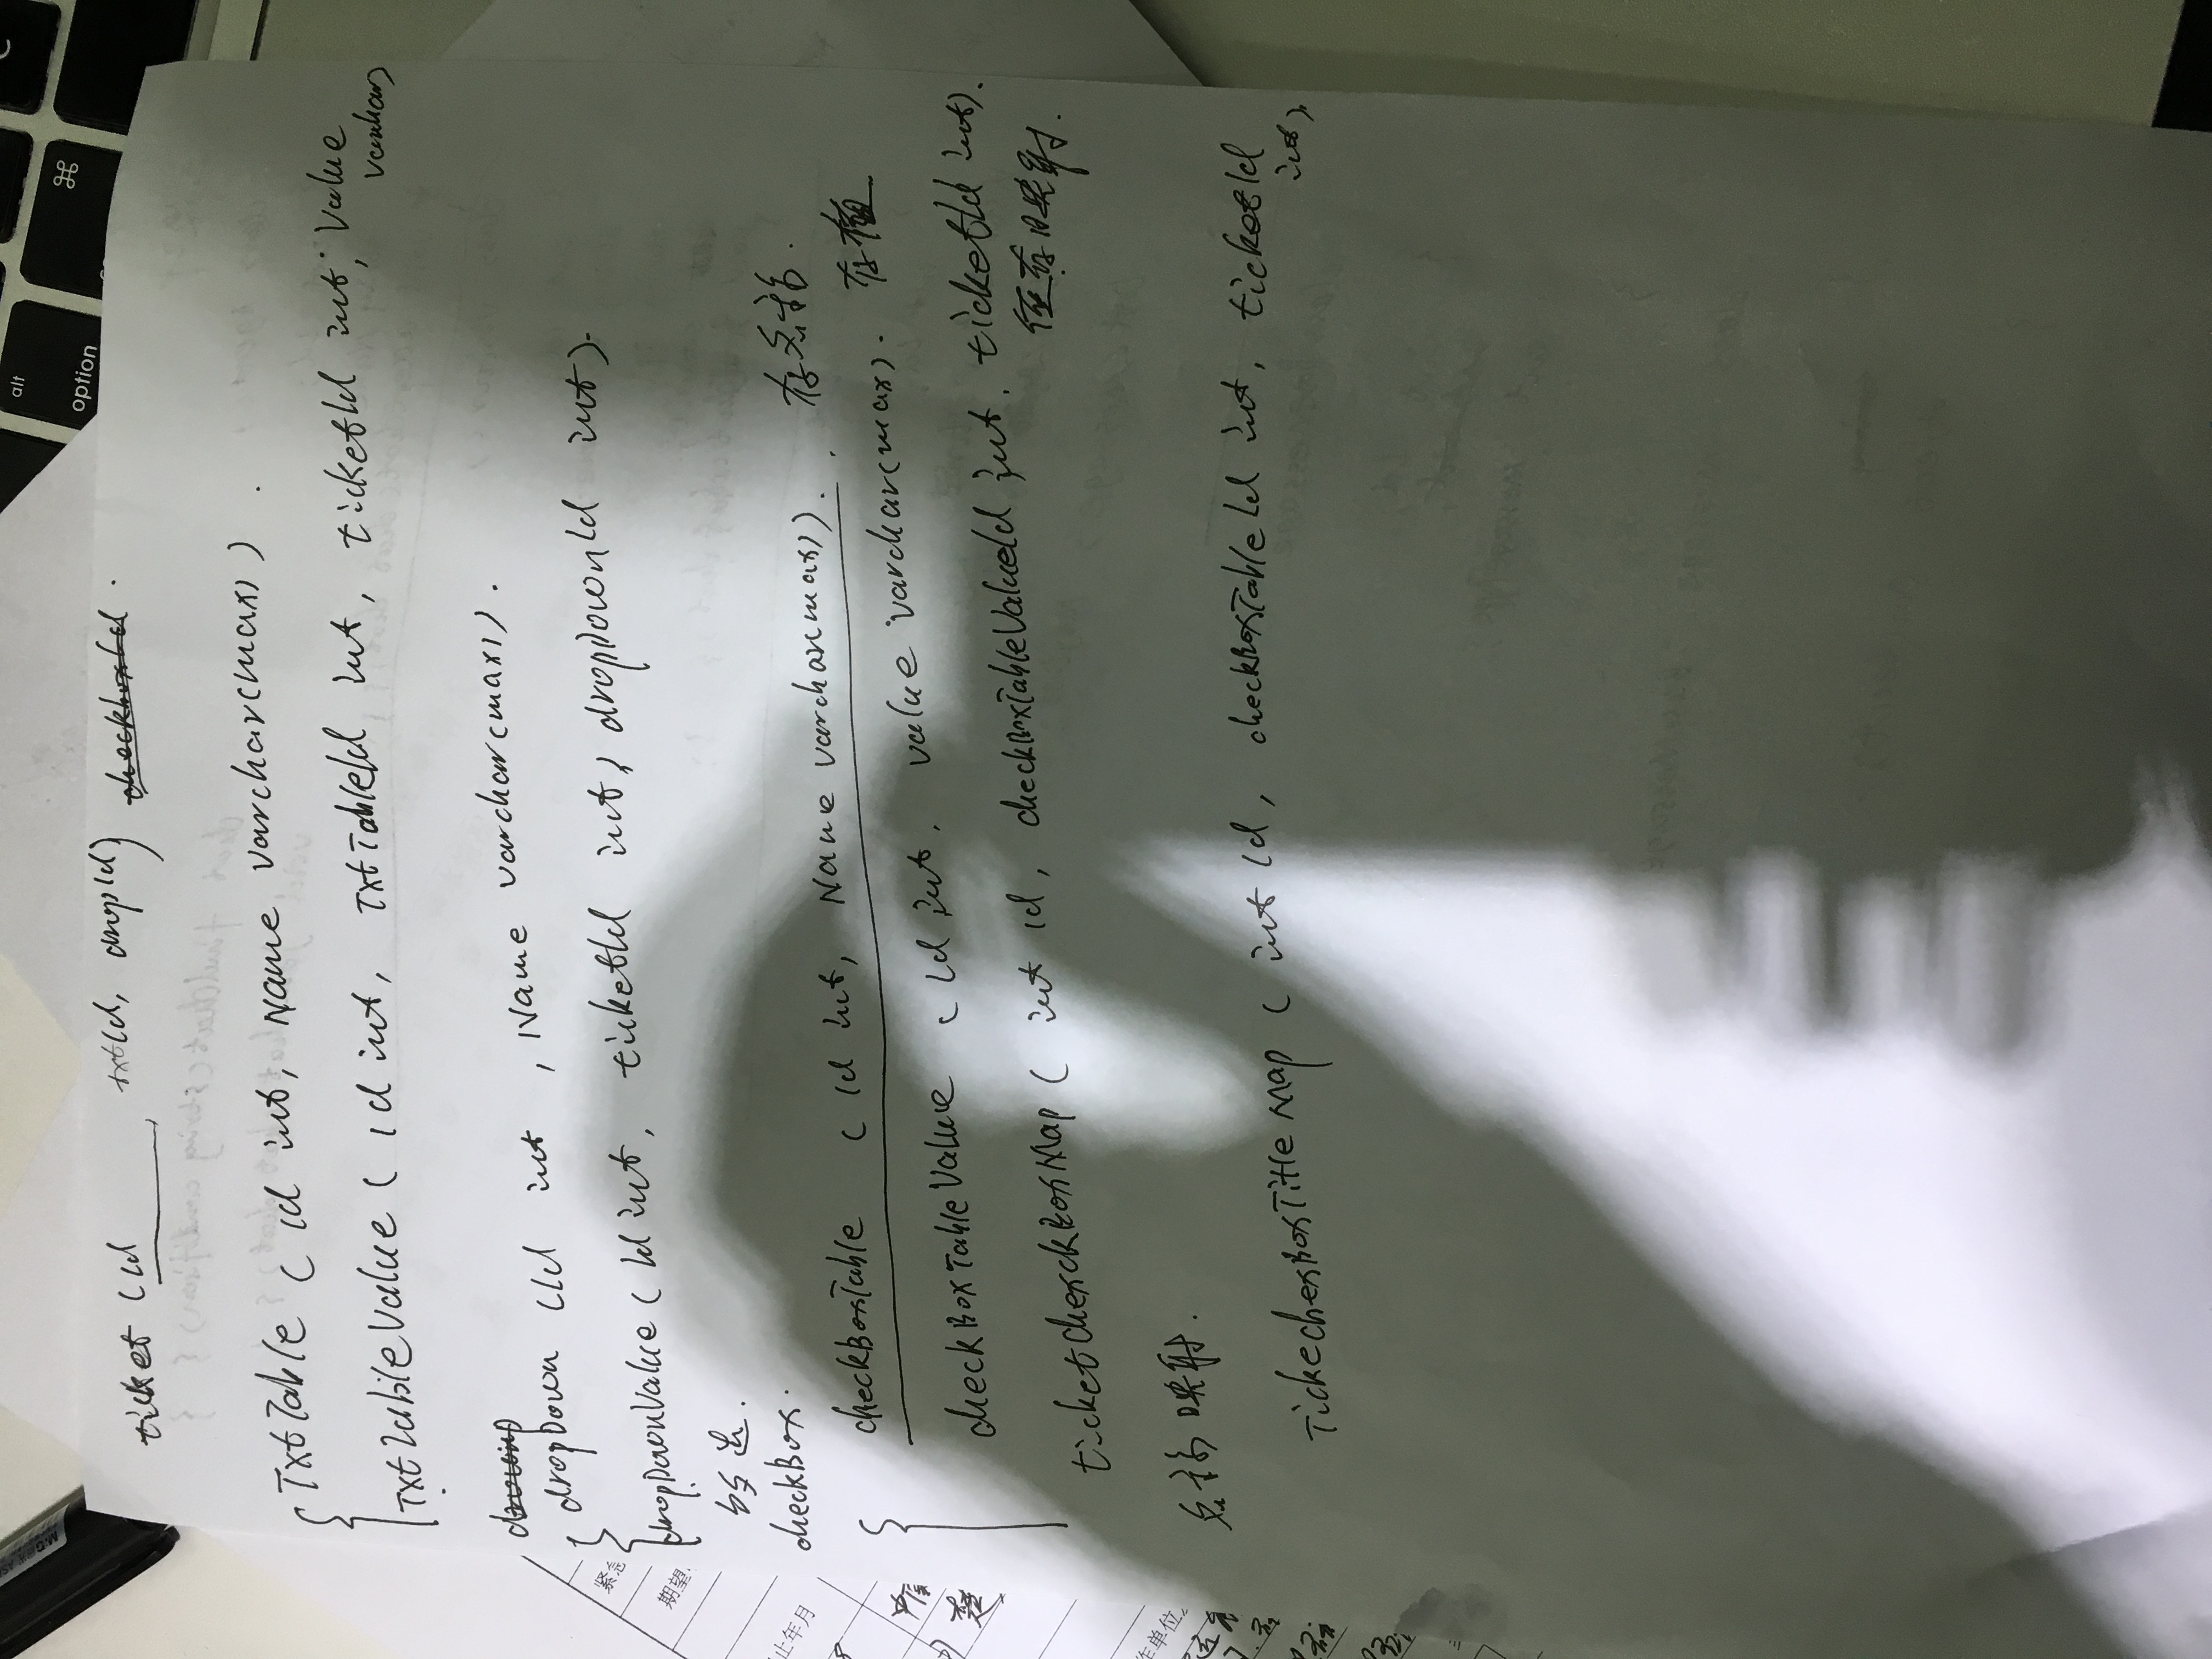 alt
option
⌘
ticket (id , txtId, dropId)
TxtTable ( id int, Name varchar(max) ) .
TxtTableValue ( id int, TxtTableId int, ticketId int, Value varchar)
dropDown (Id int , Name varchar(max)).
dropDownValue ( Id int, ticketId int, dropDownId int).
checkBox.
checkBoxTable ( id int, Name varchar(max)). 存名称.
checkBoxTableValue ( id int, value varchar(max). 存值
ticketCherckBoxMap ( int id, checkBoxTableValueId int, ticketId int).
值存映射.
名称映射.
TickecherBoxTitleMap ( int id, checkBoxTableId int, ticketId
int)
紧急
期望
止年月
作单位